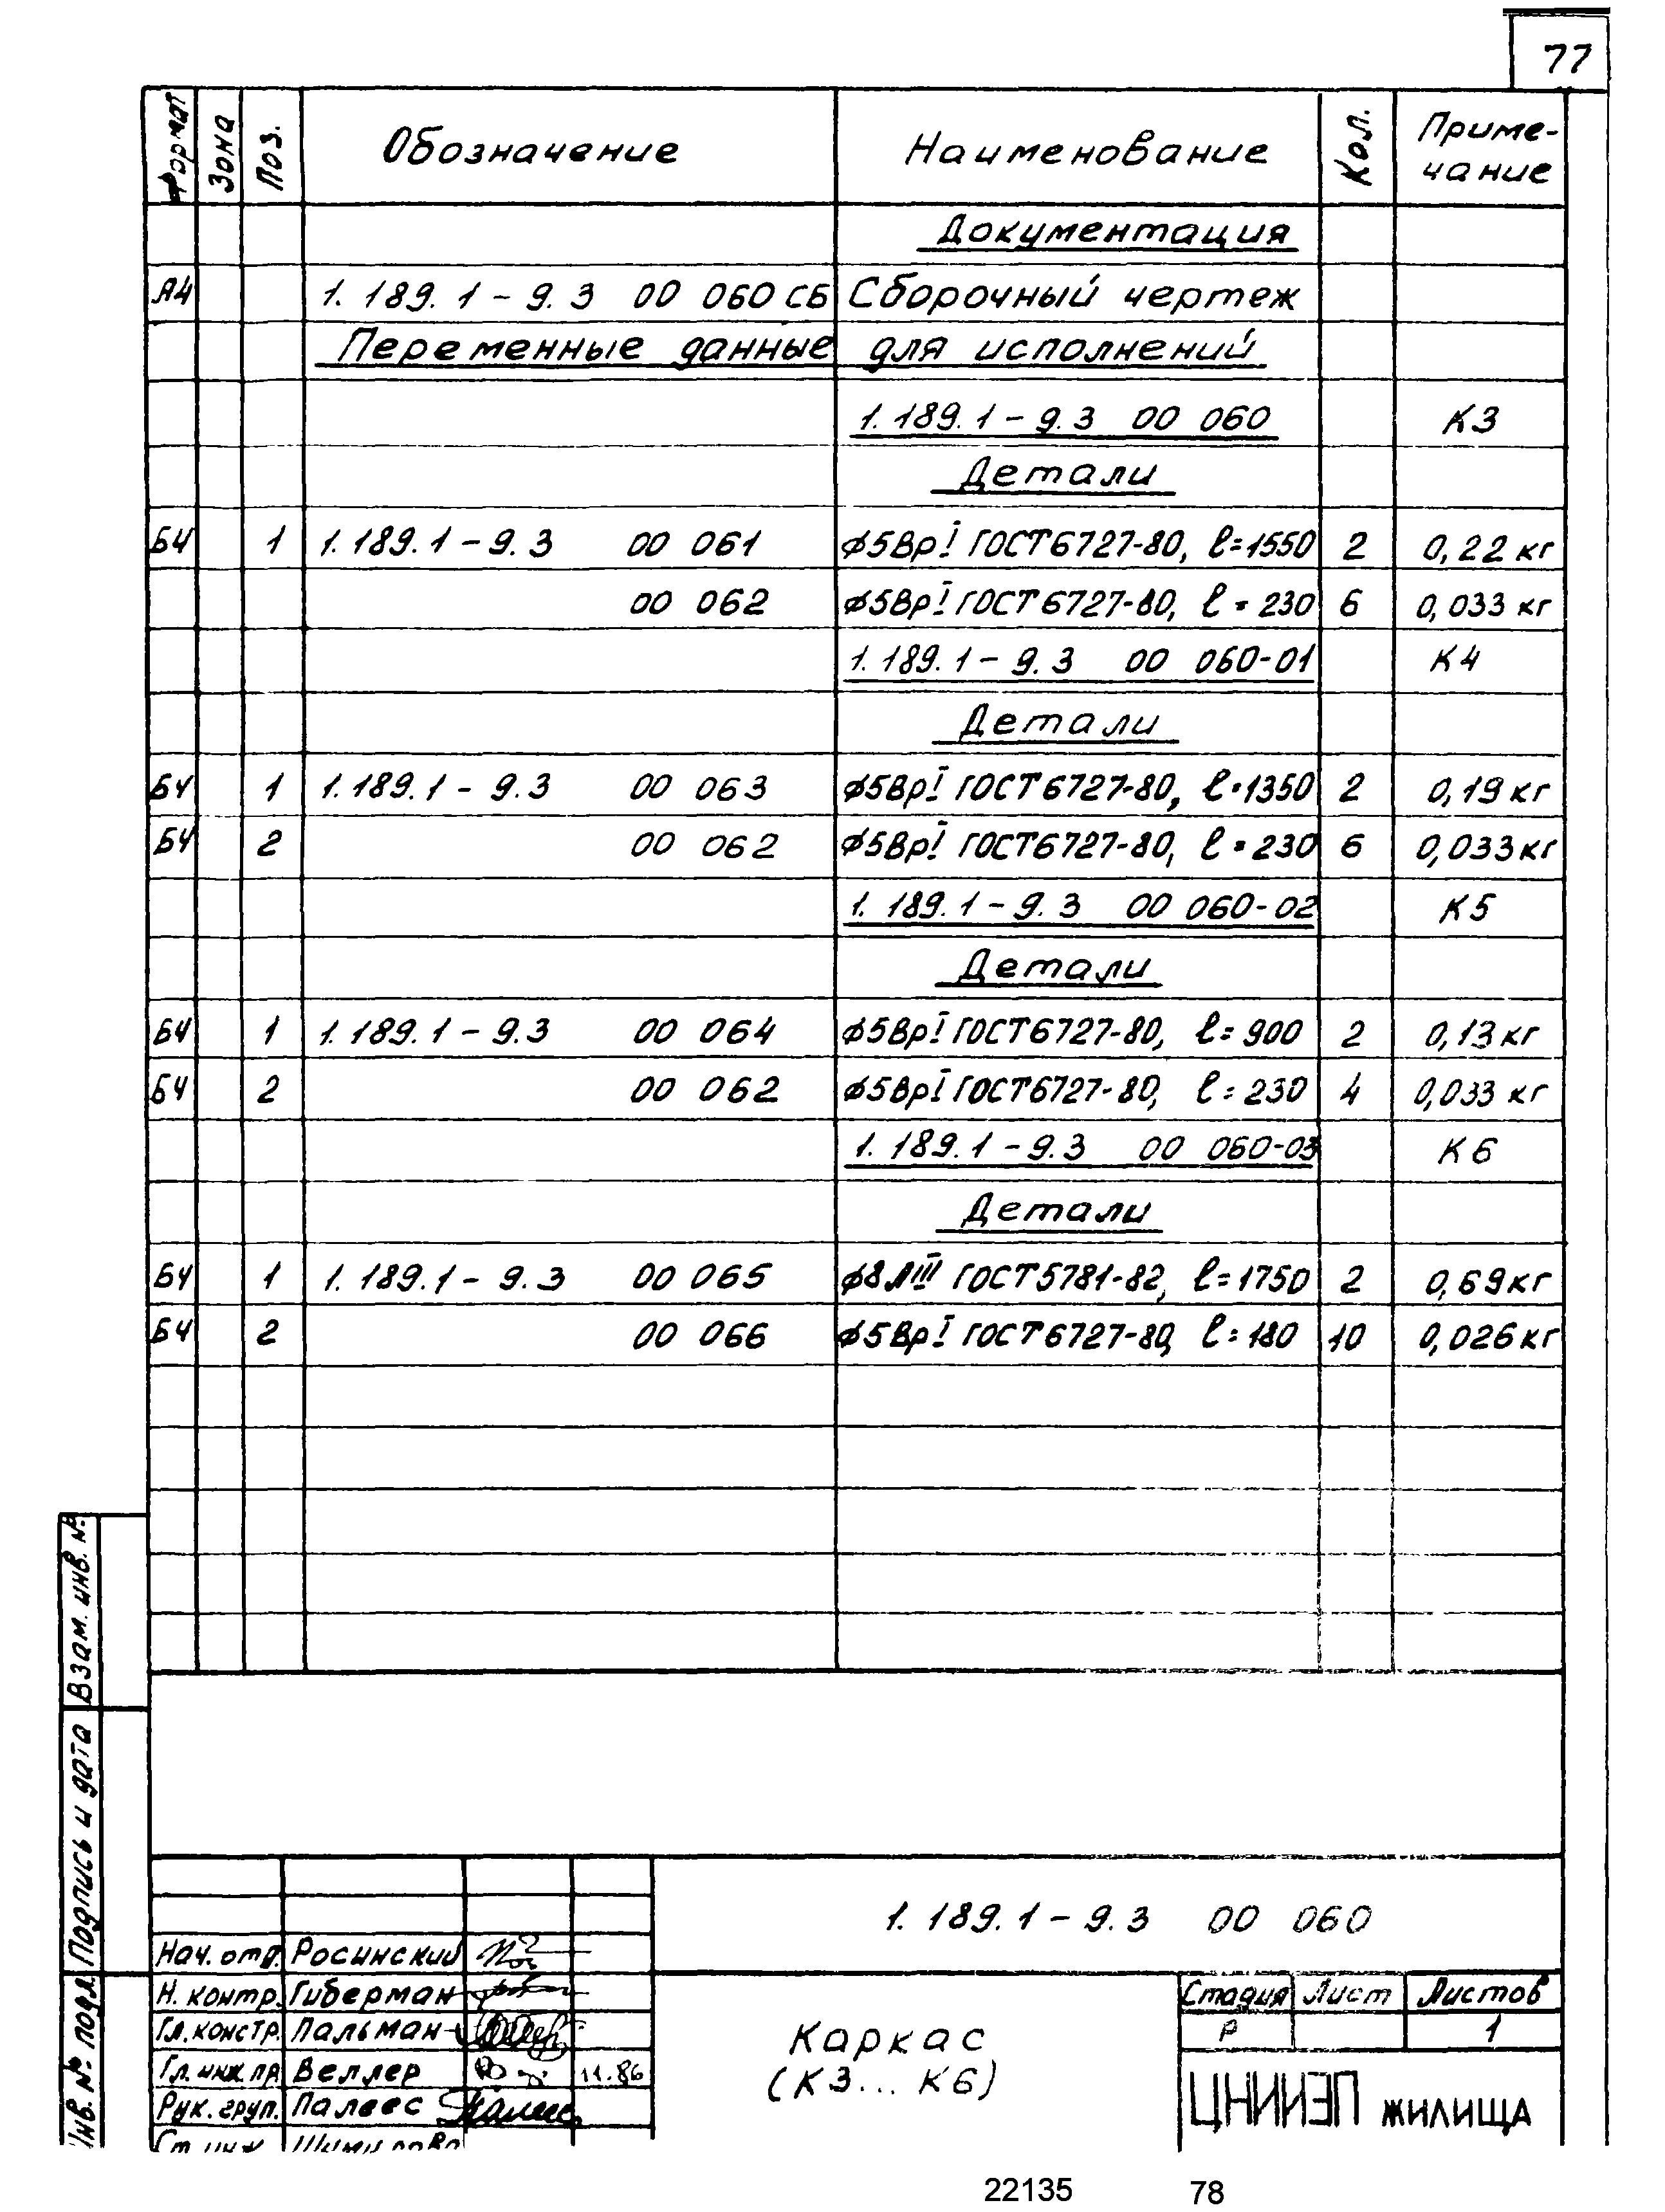 77
Формат Зона Поз. Обозначение Наименование Кол. Приме-
чание
Документация
А4 1.189.1-9.3 00 060 СБ Сборочный чертеж
Переменные данные для исполнений
1.189.1-9.3 00 060 К3
Детали
БЧ 1 1.189.1-9.3 00 061 ⌀5ВрI ГОСТ 6727-80, ℓ=1550 2 0,22 кг
00 062 ⌀5ВрI ГОСТ 6727-80, ℓ=230 6 0,033 кг
1.189.1-9.3 00 060-01 К4
Детали
БЧ 1 1.189.1-9.3 00 063 ⌀5ВрI ГОСТ 6727-80, ℓ=1350 2 0,19 кг
БЧ 2 00 062 ⌀5ВрI ГОСТ 6727-80, ℓ=230 6 0,033 кг
1.189.1-9.3 00 060-02 К5
Детали
БЧ 1 1.189.1-9.3 00 064 ⌀5ВрI ГОСТ 6727-80, ℓ=900 2 0,13 кг
БЧ 2 00 062 ⌀5ВрI ГОСТ 6727-80, ℓ=230 4 0,033 кг
1.189.1-9.3 00 060-03 К6
Детали
БЧ 1 1.189.1-9.3 00 065 ⌀8АIII ГОСТ 5781-82, ℓ=1750 2 0,69 кг
БЧ 2 00 066 ⌀5ВрI ГОСТ 6727-80, ℓ=180 10 0,026 кг
Взам. инв. №
Подпись и дата
Инв. № подл.
1.189.1-9.3 00 060
Нач. отд. Росинский
Н. контр. Гиберман
Гл. констр. Пальман
Гл. инж. пр. Веллер 11.86
Рук. груп. Палеес
Ст. инж.
Каркас
(К3... К6)
Стадия Лист Листов
Р 1
ЦНИИЭП жилища
22135 78